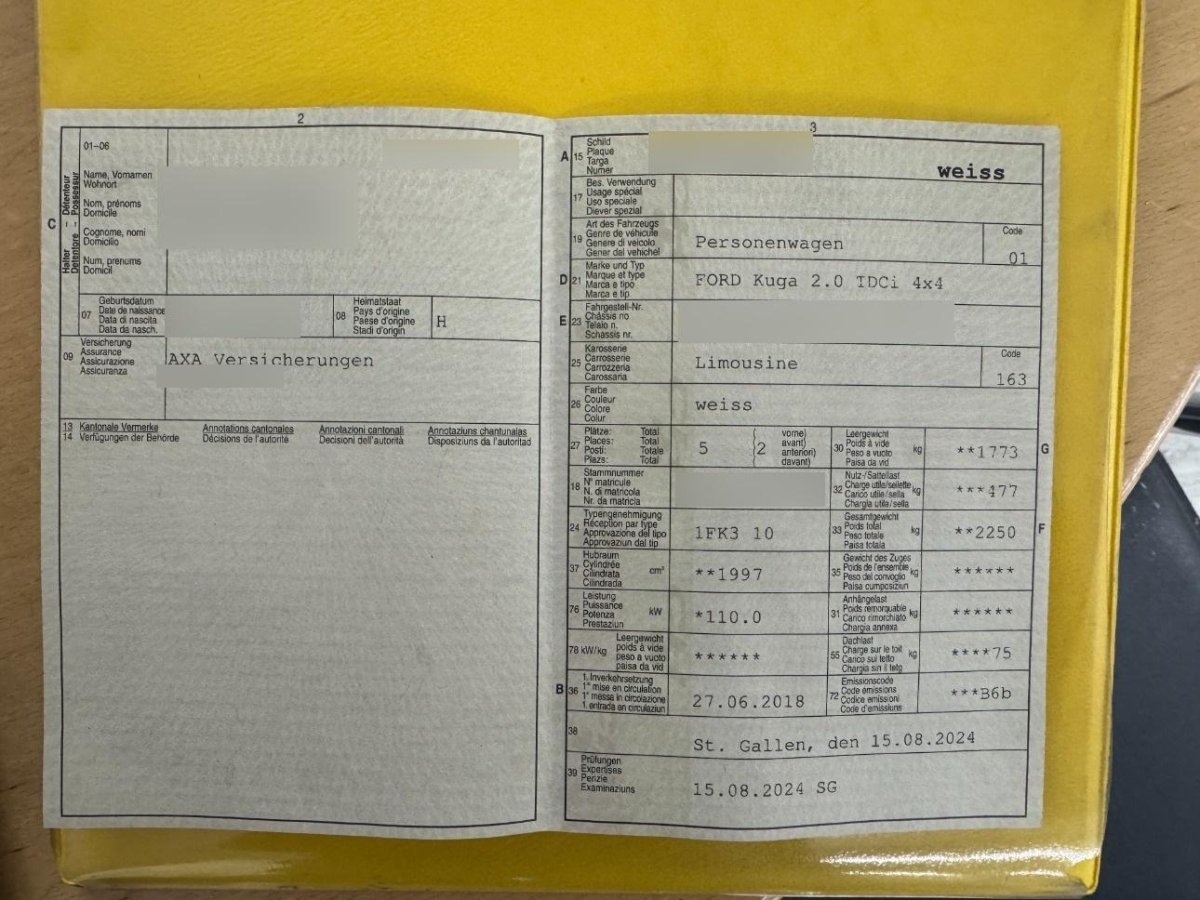 2
01–06
Halter – Détenteur
Detentore – Possessur
Name, Vornamen
Wohnort
Nom, prénoms
Domicile
C
Cognome, nomi
Domicilio
Num, prenums
Domicil
07
Geburtsdatum
Date de naissance
Data di nascita
Data da nasch.
08
Heimatstaat
Pays d'origine
Paese d'origine
Stadi d'origin
H
09
Versicherung
Assurance
Assicurazione
Assicuranza
AXA Versicherungen
13 Kantonale Vermerke Annotations cantonales Annotazioni cantonali Annotaziuns chantunalas
14 Verfügungen der Behörde Décisions de l'autorité Decisioni dell'autorità Disposiziuns da l'autoritad
3
A 15
Schild
Plaque
Targa
Numer
weiss
17
Bes. Verwendung
Usage spécial
Uso speciale
Diever spezial
19
Art des Fahrzeugs
Genre de véhicule
Genere di veicolo
Gener dal vehichel
Personenwagen
Code
01
D 21
Marke und Typ
Marque et type
Marca e tipo
Marca e tip
FORD Kuga 2.0 TDCi 4x4
E 23
Fahrgestell-Nr.
Châssis no
Telaio n.
Schassis nr.
25
Karosserie
Carrosserie
Carrozzeria
Carossaria
Limousine
Code
163
26
Farbe
Couleur
Colore
Colur
weiss
27
Plätze: Total
Places: Total
Posti: Totale
Plazs: Total
5
2
vorne)
avant)
anteriori)
davant)
30
Leergewicht
Poids à vide
Peso a vuoto
Paisa da vid
kg
**1773
G
18
Stammnummer
N° matricule
N. di matricola
Nr. da matricla
32
Nutz-/Sattellast
Charge utile/sellette
Carico utile/sella
Chargia utila/sella
kg
***477
24
Typengenehmigung
Réception par type
Approvazione del tipo
Approvaziun dal tip
1FK3 10
33
Gesamtgewicht
Poids total
Peso totale
Paisa totala
kg
**2250
F
37
Hubraum
Cylindrée
Cilindrata
Cilindrada
cm³
**1997
35
Gewicht des Zuges
Poids de l'ensemble
Peso del convoglio
Paisa cumposiziun
kg
******
76
Leistung
Puissance
Potenza
Prestaziun
kW
*110.0
31
Anhängelast
Poids remorquable
Carico rimorchiato
Chargia annexa
kg
******
78 kW/kg
Leergewicht
poids à vide
peso a vuoto
paisa da vid
******
55
Dachlast
Charge sur le toit
Carico sul tetto
Chargia sin il tetg
kg
****75
B 36
1. Inverkehrsetzung
1re mise en circulation
1a messa in circolazione
1. entrada en circulaziun
27.06.2018
72
Emissionscode
Code émissions
Codice emissioni
Code d'emissiuns
***B6b
38
St. Gallen, den 15.08.2024
39
Prüfungen
Expertises
Perizie
Examinaziuns
15.08.2024 SG